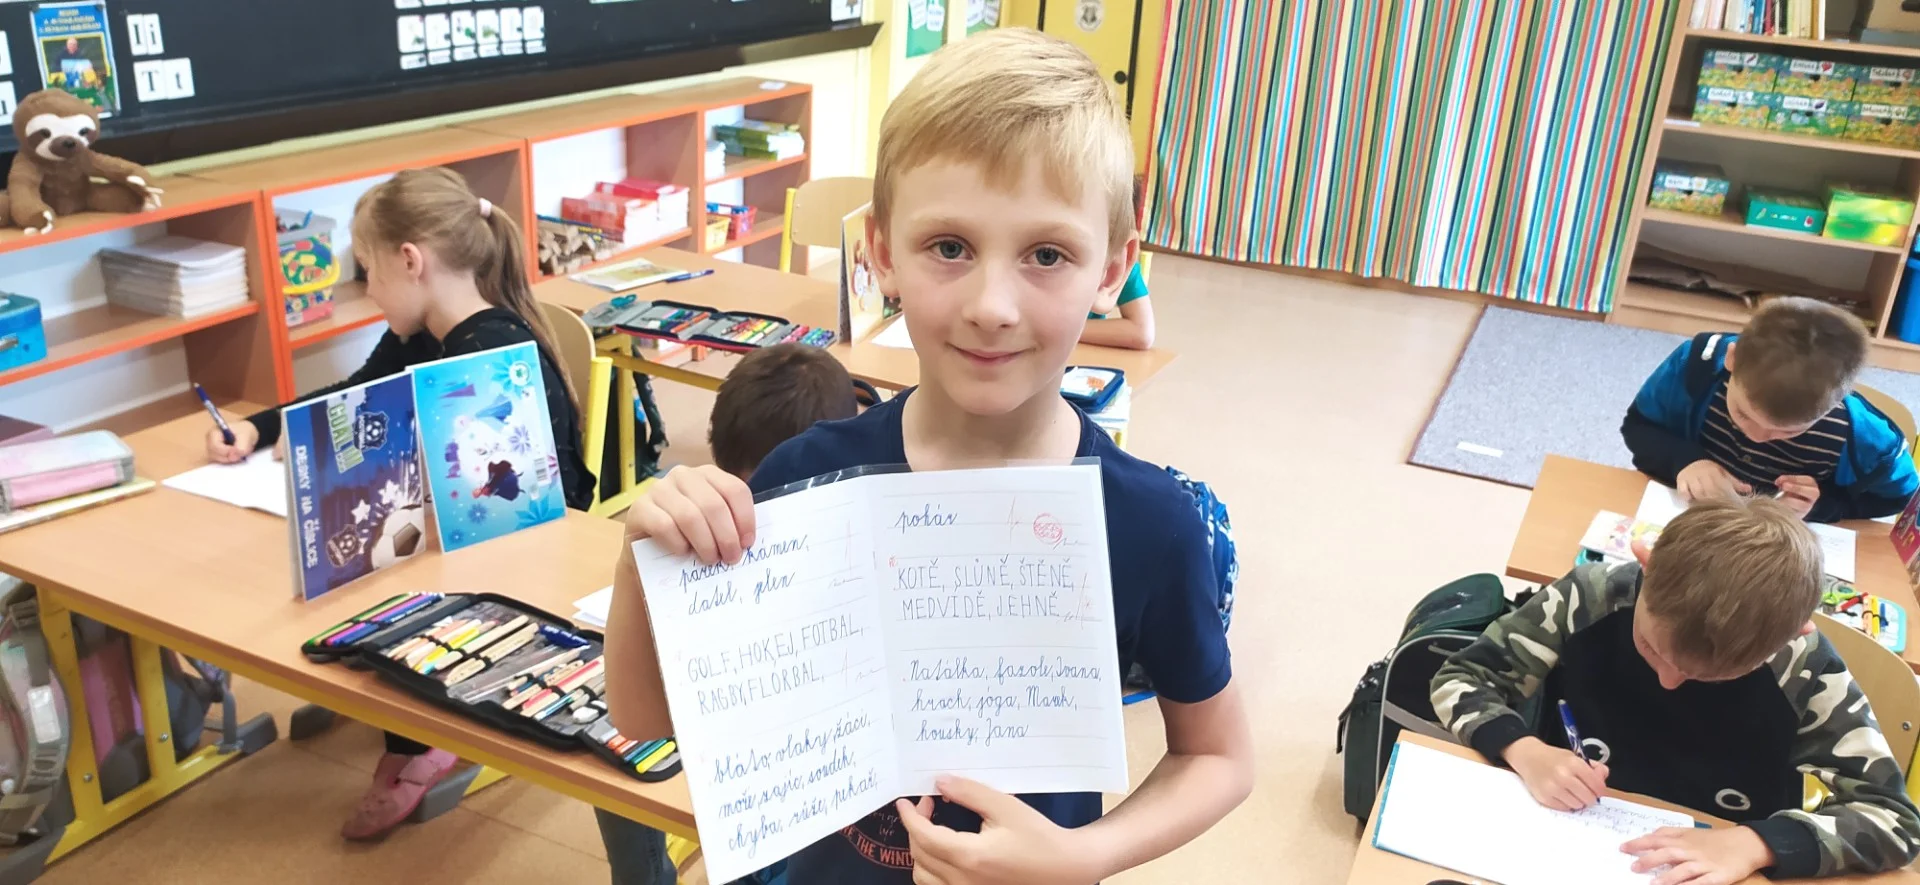 Ii
Tt
GOAL!
DESKY NA ČÍSLICE
párek, kámen,
datel, jelen
GOLF, HOKEJ, FOTBAL,
RAGBY, FLORBAL,
bláto, vlaky, žáci,
moře, zajíc, soudek,
chyba, růže, pekař,
pohár
KOTĚ, SLŮNĚ, ŠTĚNĚ,
MEDVÍDĚ, JEHNĚ,
Natálka, fazole, Ivana,
hrach, jóga, Marek,
housky, Jana
THE WIND